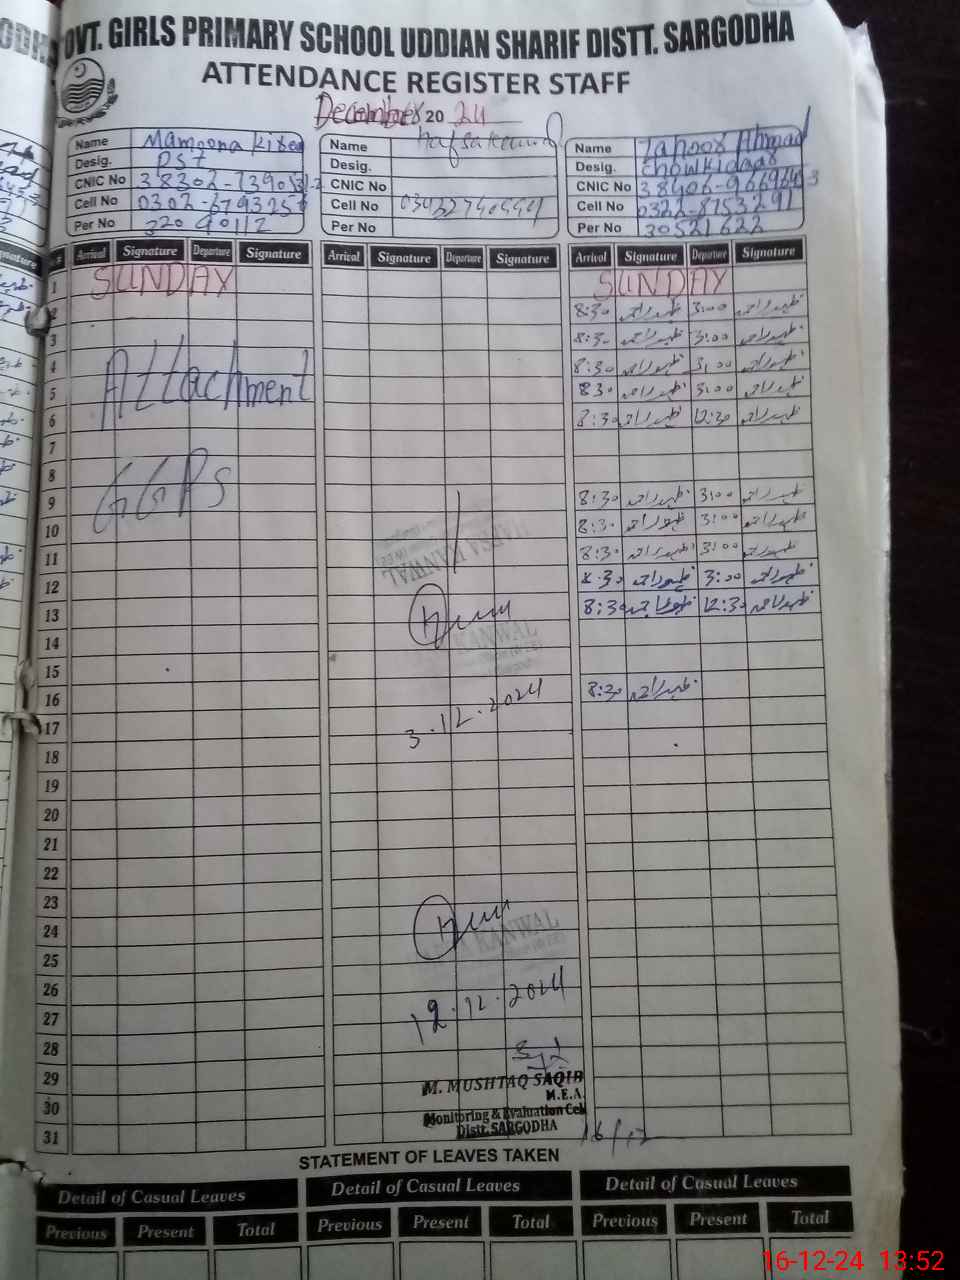 GOVT. GIRLS PRIMARY SCHOOL UDDIAN SHARIF DISTT. SARGODHA
ATTENDANCE REGISTER STAFF
December 2024
Name Mamoona
Desig. PST
CNIC No
Cell No
Per No
Name Hafsa Kanwal
Desig.
CNIC No
Cell No
Per No
Name Zahoor Ahmad
Desig. Chowkidaar
CNIC No
Cell No 0322-8753291
Per No 30521622
Arrival Signature Departure Signature Arrival Signature Departure Signature Arrival Signature Departure Signature
1 SUNDAY SUNDAY
2 8:30 ظہور احمد 3:00 ظہور احمد
3 8:30 ظہور احمد 3:00 ظہور احمد
4 Attachment 8:30 ظہور احمد 3:00 ظہور احمد
5 830 ظہور احمد 3:00 ظہور احمد
6 8:30 ظہور احمد 12:30 ظہور احمد
7
8 GGPS
9 8:30 ظہور احمد 3:00 ظہور احمد
10 8:30 ظہور احمد 3:00 ظہور احمد
11 HAFSA KANWAL 8:30 ظہور احمد 3:00 ظہور احمد
12 8:30 ظہور احمد 3:00 ظہور احمد
13 8:30 ظہور احمد 12:30 ظہور احمد
14 KANWAL
15
16 8:30 ظہور احمد
17 3.12.2024
18
19
20
21
22
23
24
25 KANWAL
26
27 12.12.2024
28
29 M. MUSHTAQ SAQIB
M.E.A.
30 Monitoring & Evaluation Cell
31 Distt. SARGODHA
16/12
STATEMENT OF LEAVES TAKEN
Detail of Casual Leaves Detail of Casual Leaves Detail of Casual Leaves
Previous Present Total Previous Present Total Previous Present Total
16-12-24 13:52